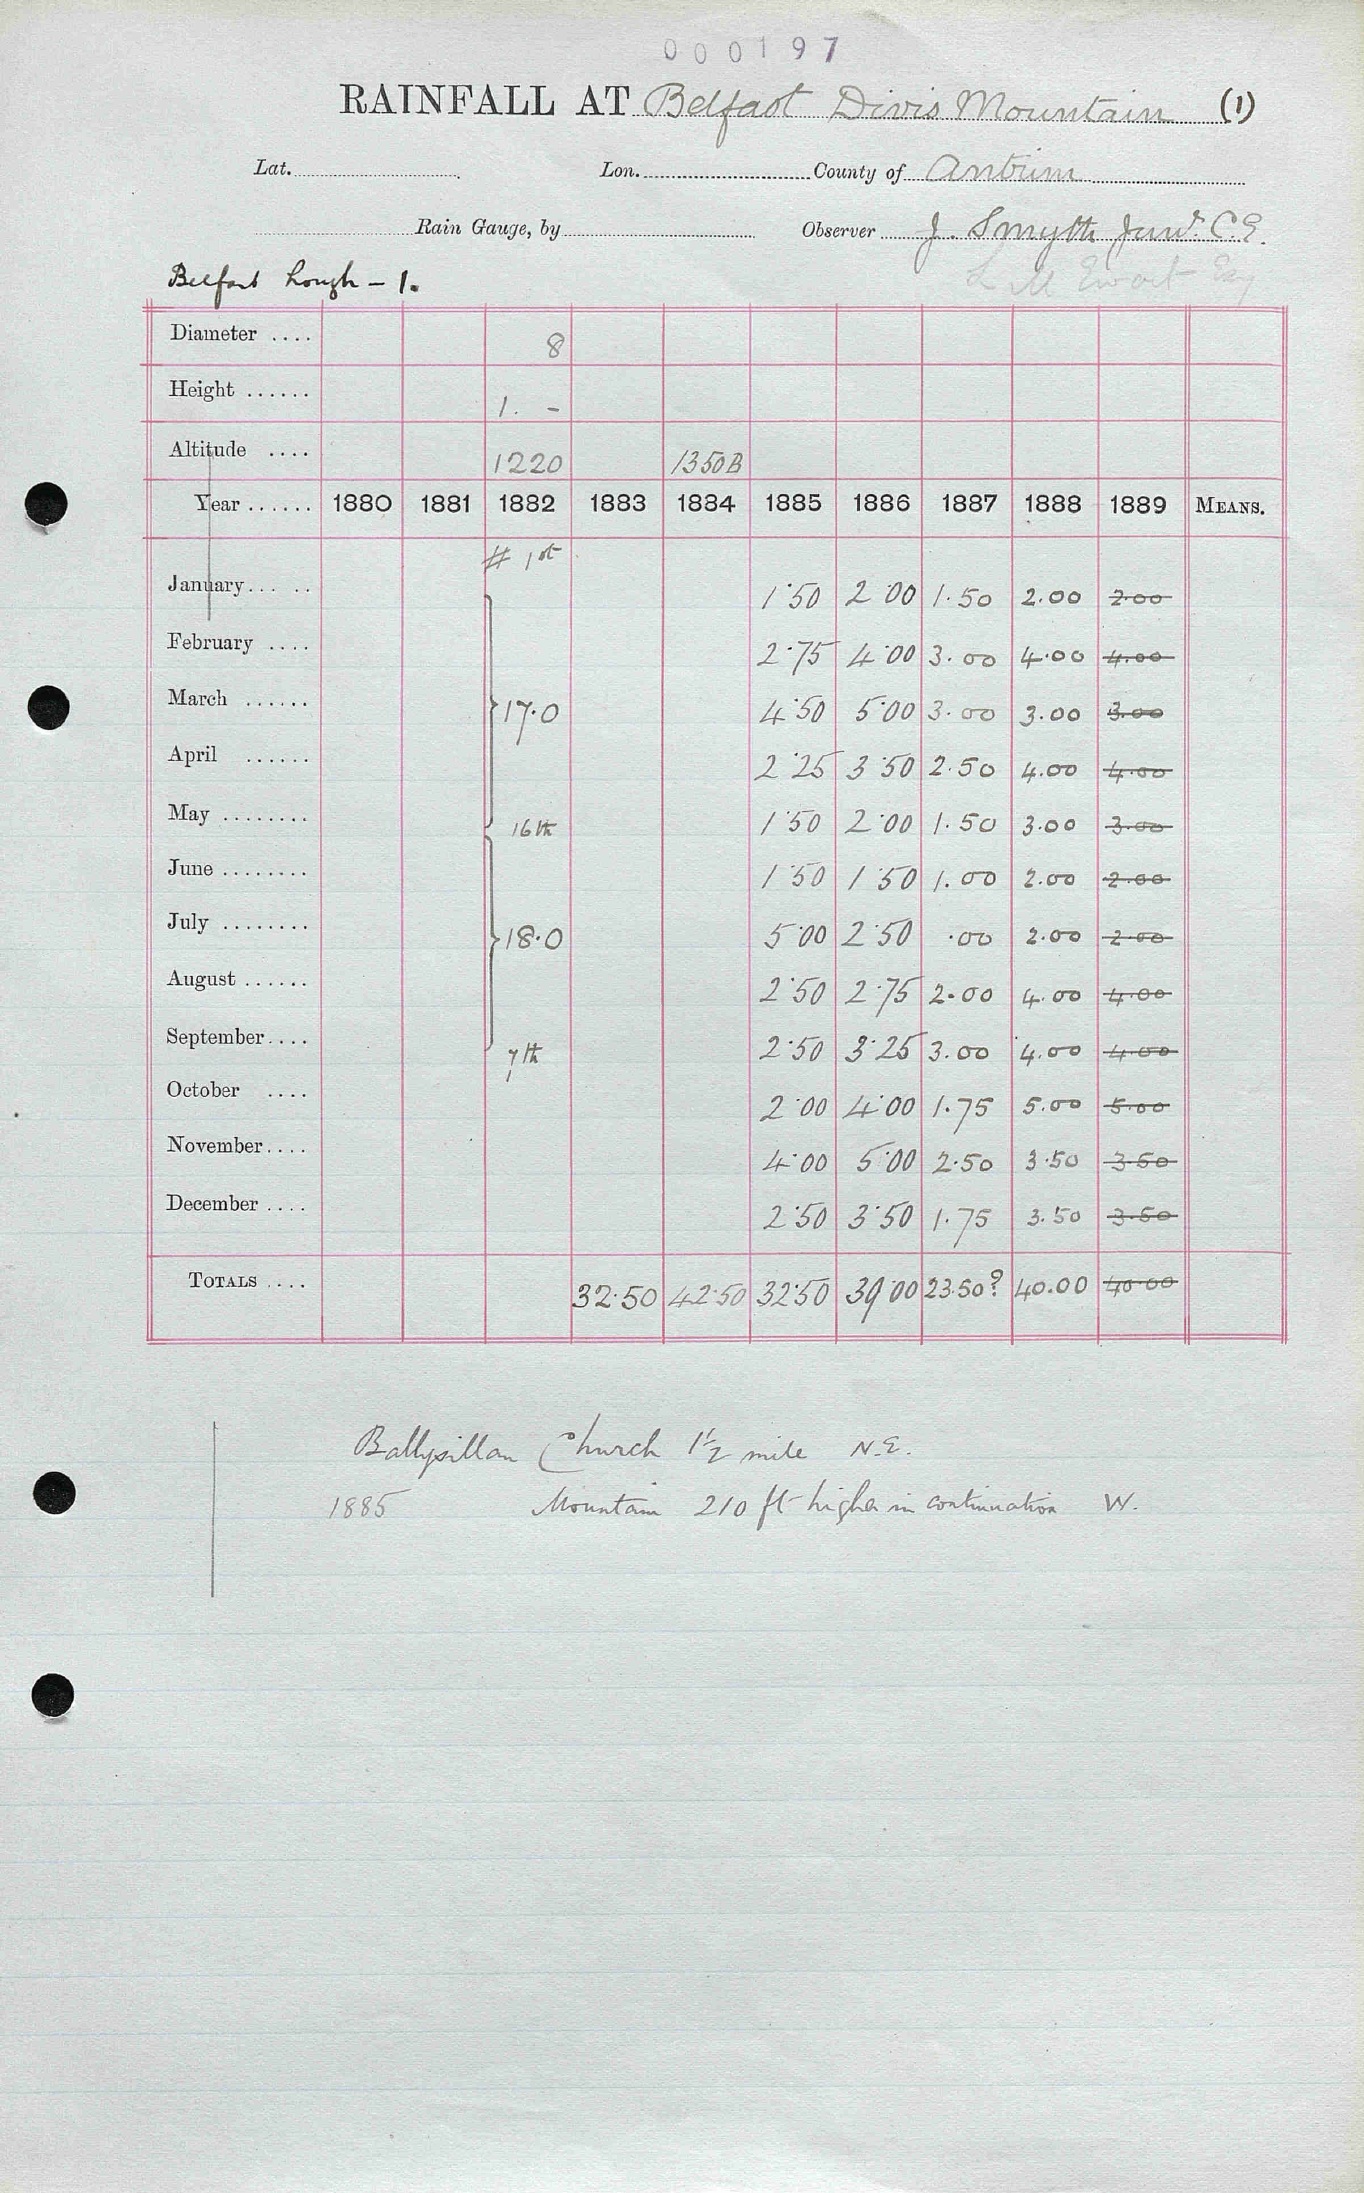 000197
RAINFALL AT Belfast Divis Mountain (1)
Lat. Lon. County of Antrim
Rain Gauge, by Observer J. Smyth Junr. C.E.
Belfast Lough - 1. L M Ewart Esq
Diameter .... 8
Height ...... 1. -
Altitude .... 1220 1350B
Year ...... 1880 1881 1882 1883 1884 1885 1886 1887 1888 1889 MEANS.
# 1st
January ... .. 1.50 2.00 1.50 2.00 2.00
February .... 2.75 4.00 3.00 4.00 4.00
March ...... 17.0 4.50 5.00 3.00 3.00 3.00
April ...... 2.25 3.50 2.50 4.00 4.00
May ........ 16th 1.50 2.00 1.50 3.00 3.00
June ........ 1.50 1.50 1.00 2.00 2.00
July ........ 18.0 5.00 2.50 .00 2.00 2.00
August ...... 2.50 2.75 2.00 4.00 4.00
September .... 7th 2.50 3.25 3.00 4.00 4.00
October .... 2.00 4.00 1.75 5.00 5.00
November .... 4.00 5.00 2.50 3.50 3.50
December .... 2.50 3.50 1.75 3.50 3.50
TOTALS .... 32.50 42.50 32.50 39.00 23.50? 40.00 40.00
Ballysillan Church 1½ mile N.E.
1885 Mountain 210 ft higher in continuation W.